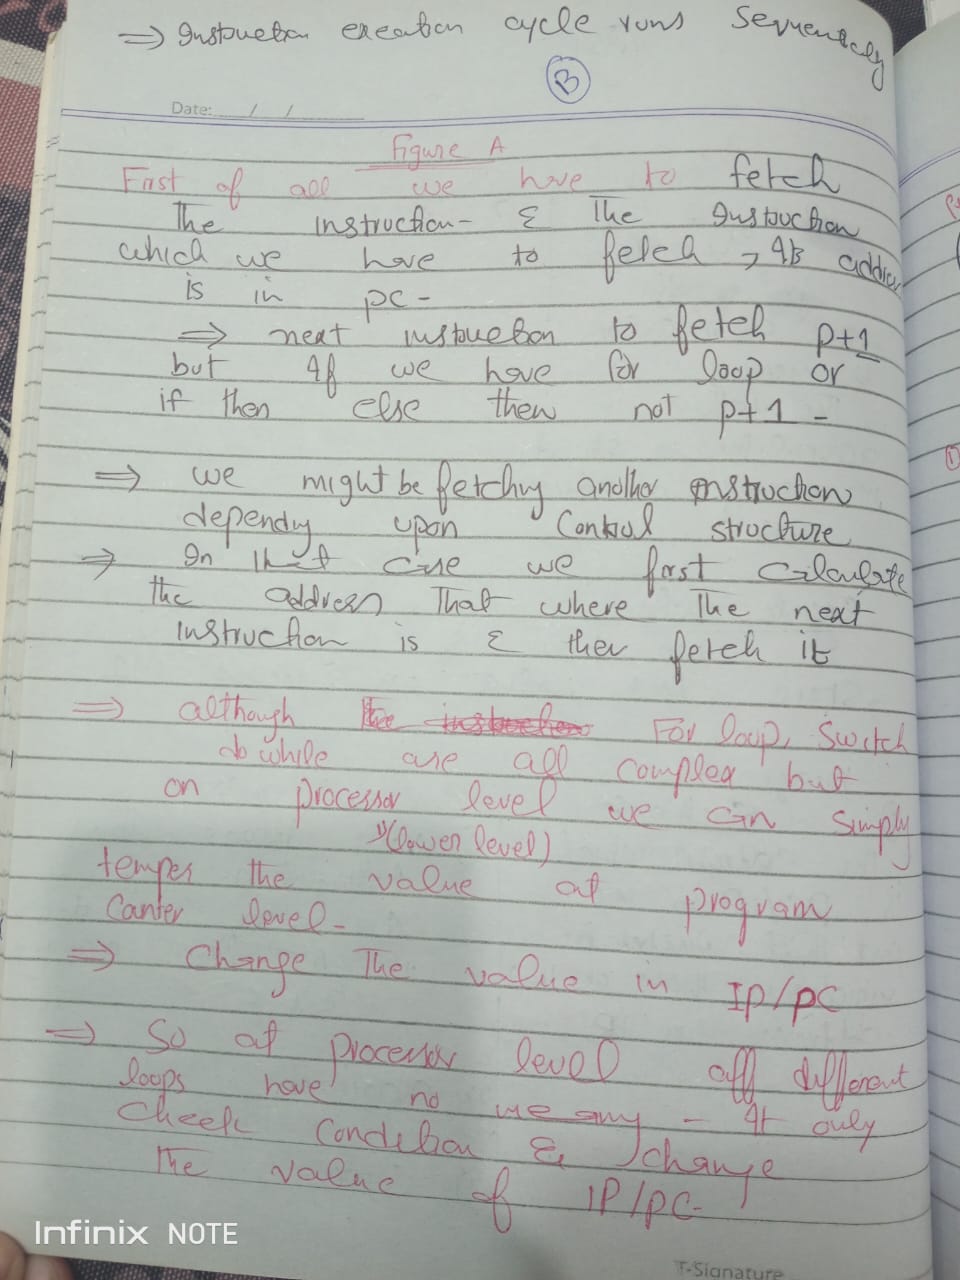 ⇒ Instruction execution cycle runs Sequentially
B
Date: / /
Figure A
First of all we have to fetch
The instruction - & The Instruction
which we have to fetch, its address
is in pc -
⇒ next instruction to fetch p+1
but If we have for loop or
if then else then not p+1 -
⇒ we might be fetching another instruction
depending upon Control structure
⇒ In that case we first calculate
the address That where The next
instruction is & then fetch it
⇒ although For loop, Switch
do while are all complex but
on processor level we can simply
(lower level)
temper the value at program
Canter level -
⇒ Change The value in IP/PC
⇒ So at processor level all different
loops have no - It only
Check Condition & change
The value of IP/PC -
Infinix NOTE
T-Signature